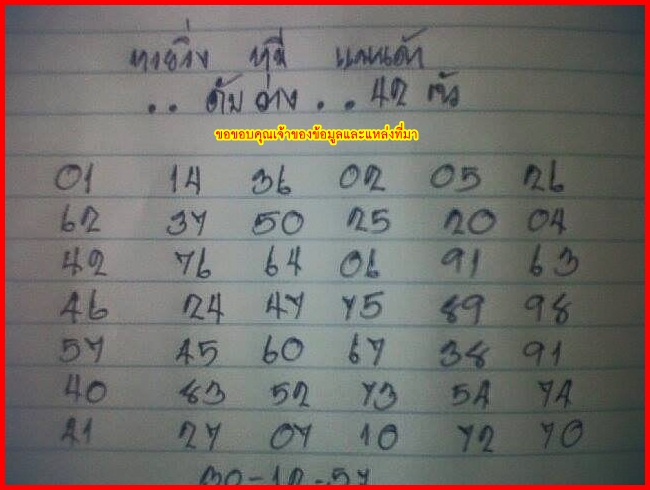 หวยวิ่ง หุ้นี แกนเด้า
. . ดับ ล่าง . . 42 ตัว
ขอขอบคุณเจ้าของข้อมูลและแหล่งที่มา
01 14 36 02 05 26
62 37 50 25 20 04
42 76 64 06 91 63
46 24 47 75 89 98
57 45 60 67 38 91
40 83 52 73 54 74
41 27 07 10 72 70
30-12-57